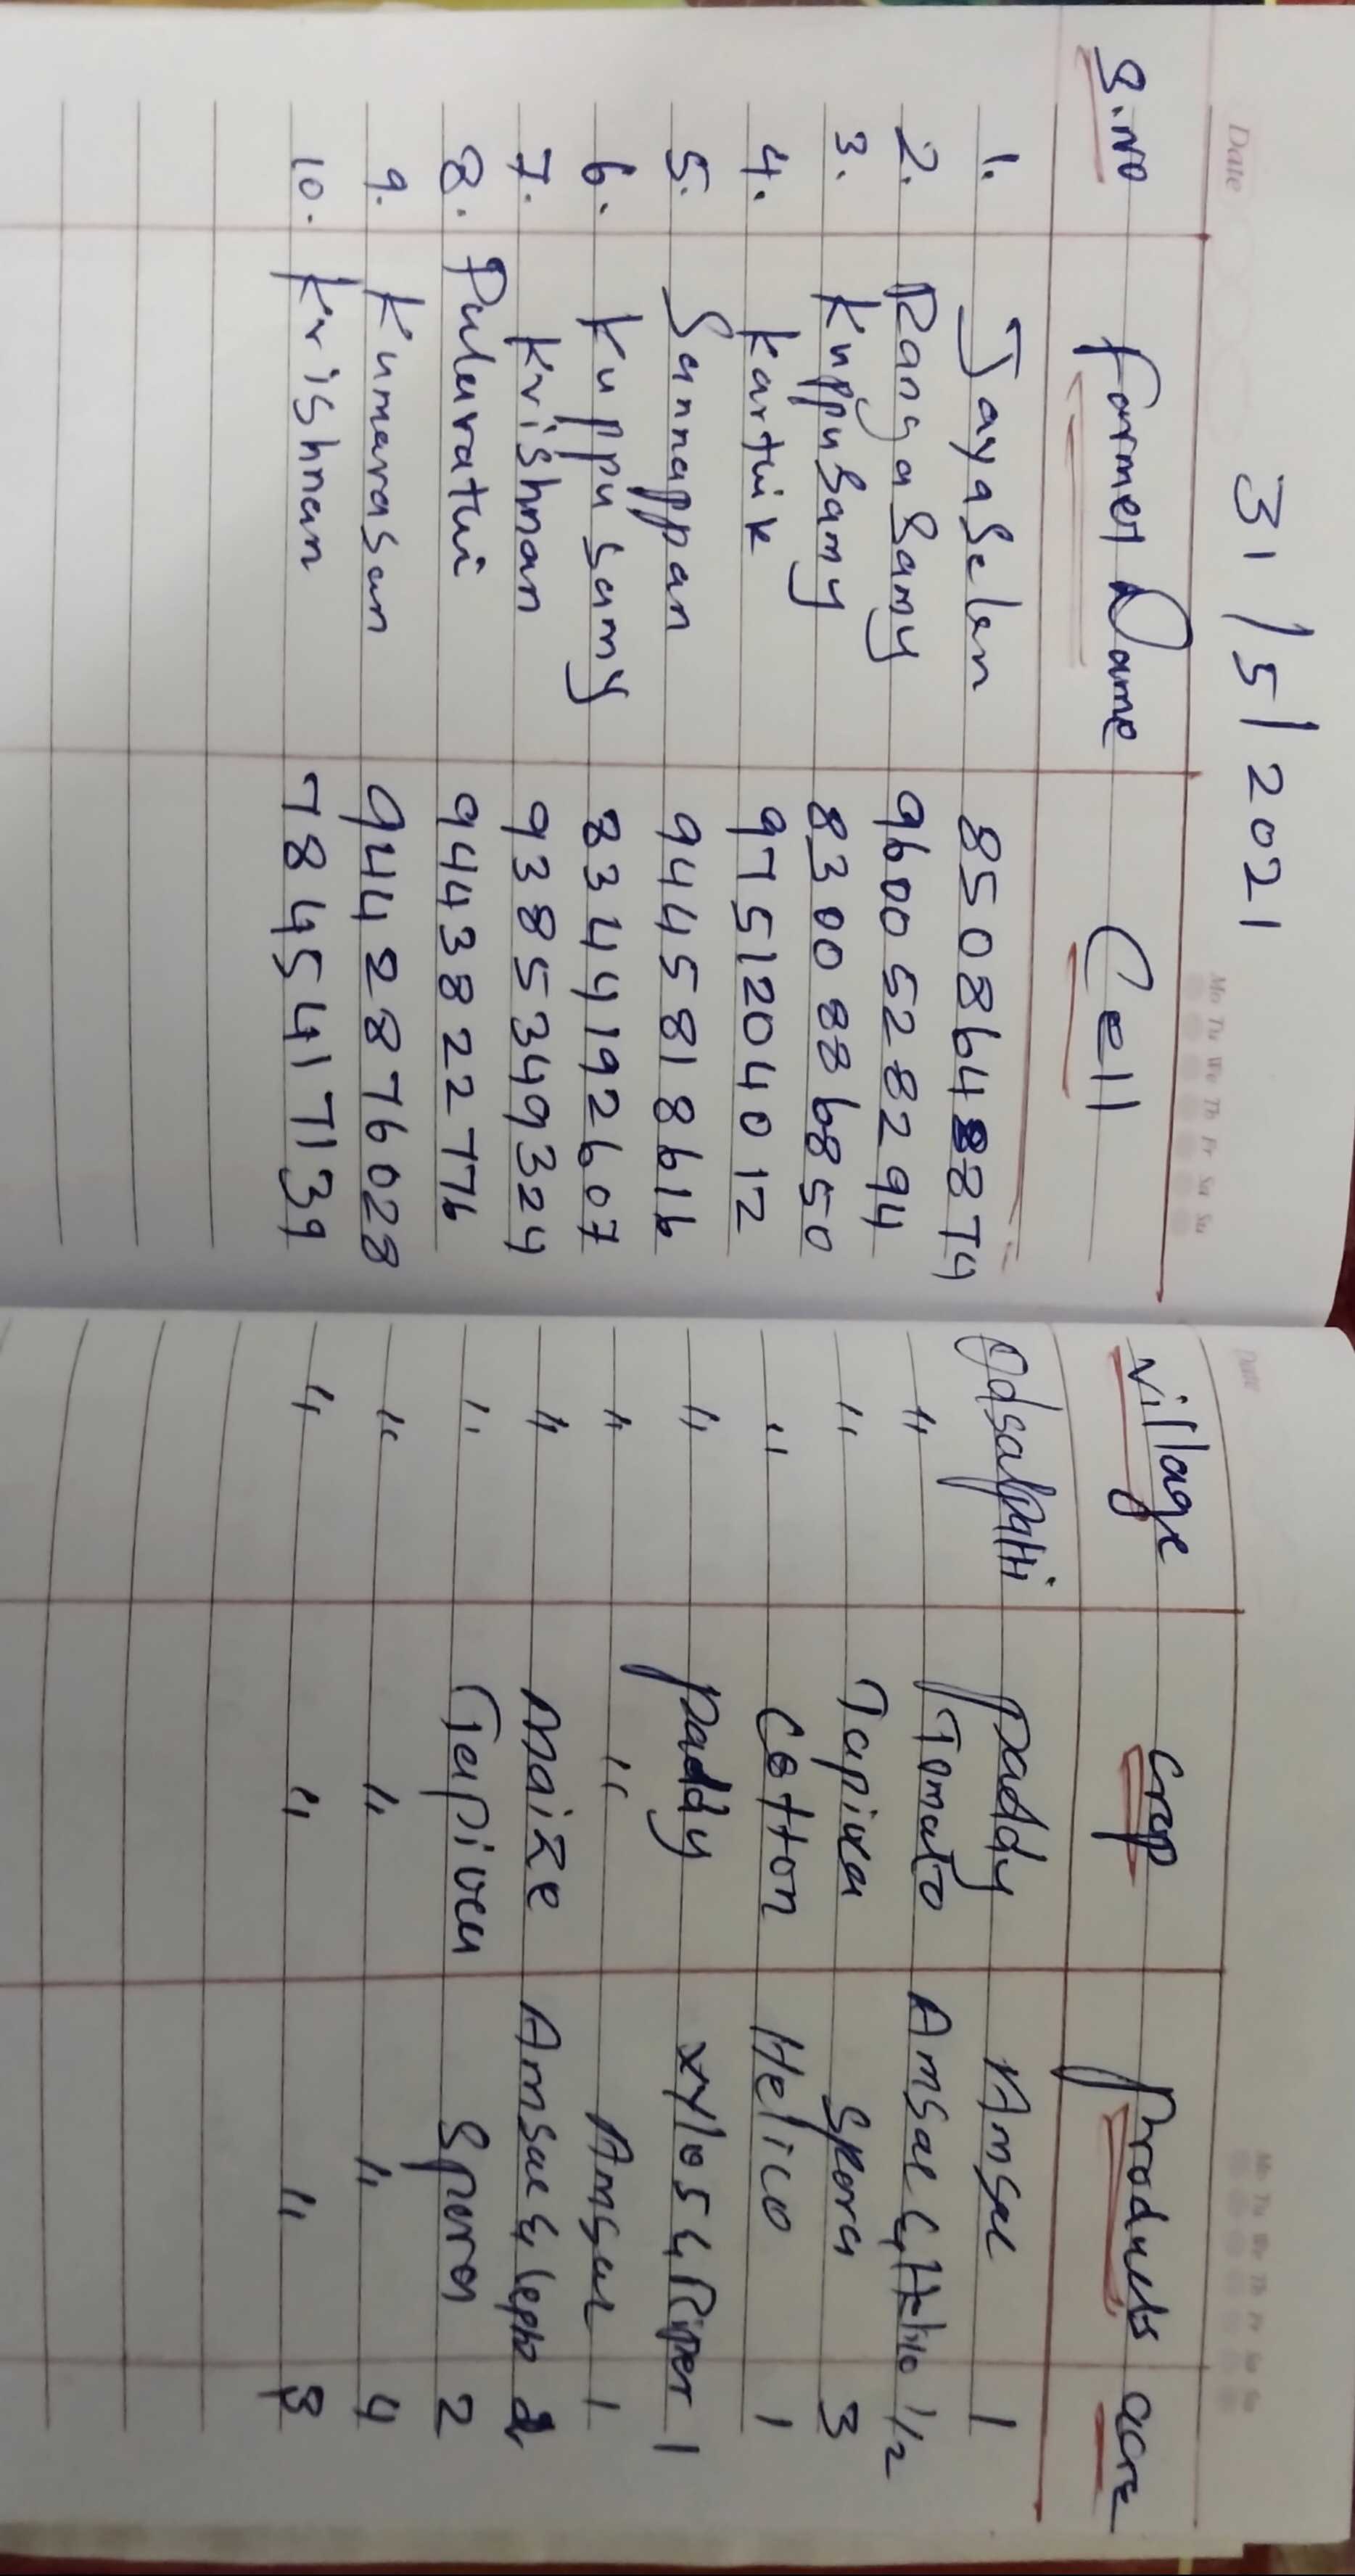 Date 31/5/2021 Mo Tu We Th Fr Sa Su
S.No Farmer Name Cell Village Crop Products acre
1. Jayaselan 8508648874 Odsalpatti Paddy Amsac 1
2. Rangasamy 9600528294 " Tomato Amsac & Helico 1/2
3. Kuppusamy 8300886850 " Tapioca Spera 3
4. Karthik 9751204012 " Cotton Helico 1
5. Sannappan 9445818616 " Paddy xylo 5 & Riper 1
6. Kuppusamy 8344192607 " " Amsac 1
7. Krishnan 9385349324 " Maize Amsac & lepto 2
8. 9443822776 " Tapioca Spera 2
9. Kumarasan 9442876028 " " " 4
10. Krishnan 7845417139 " " " 3